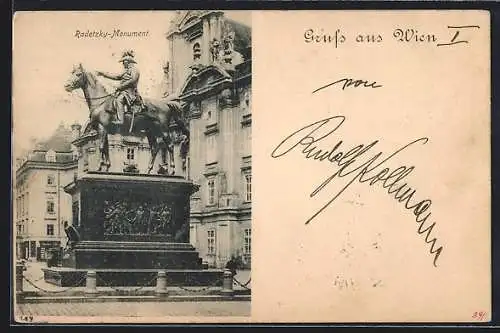 Radetzky-Monument
Gruß aus Wien I
von
Rudolf Kollmann